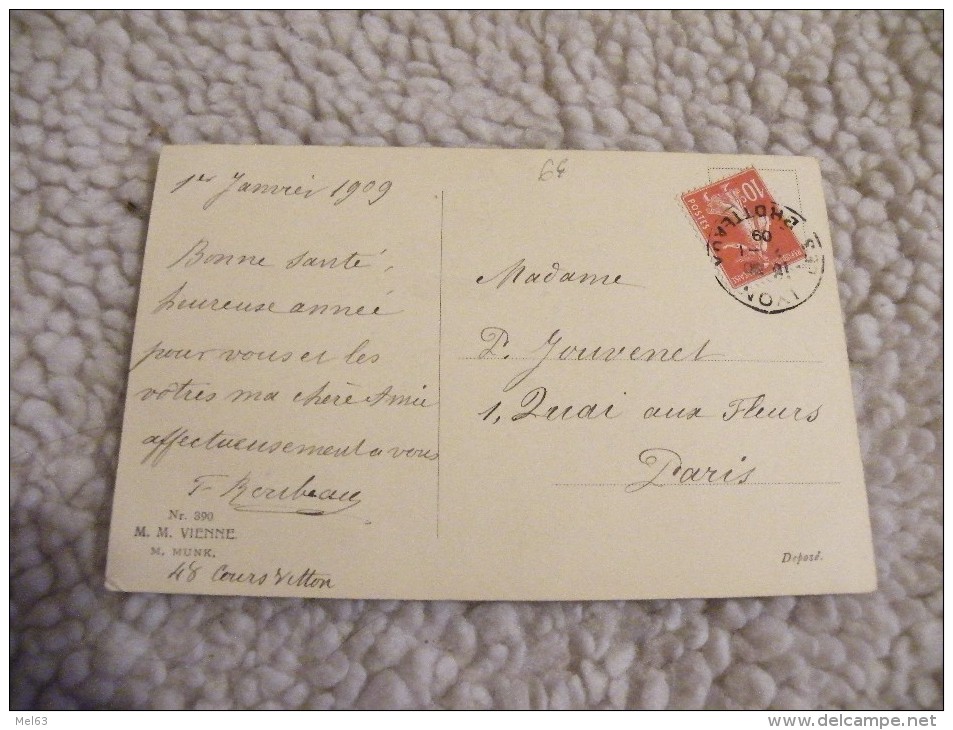 64
1er Janvier 1909
Bonne santé,
heureuse année
pour vous et les
vôtres ma chère Amie
affectueusement a vous
Nr. 390
M. M. VIENNE
M. MUNK.
48 Cours Vitton
10c
POSTES
LYON
BROTTEAUX
09
Madame
P. Jouvenet
1, Quai aux Fleurs
Paris
Deposé.
Mel63
delcampe.net